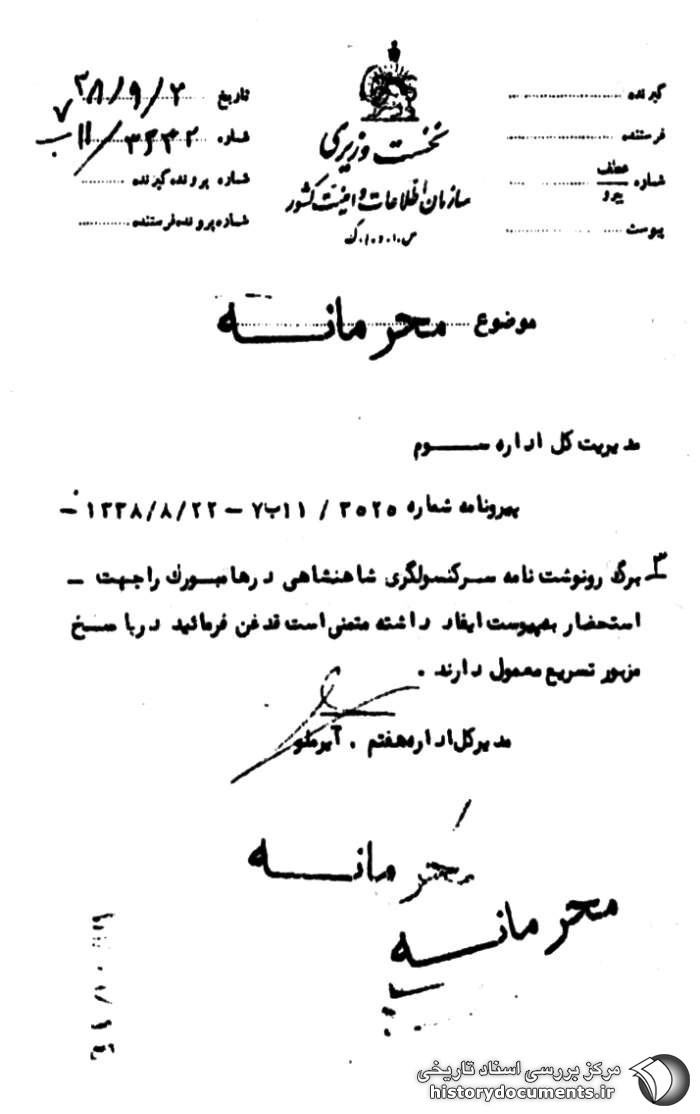 نخست وزیری
سازمان اطلاعات و امنیت کشور
س.ا.و.ا.ک
گیرنده
فرستنده
شماره عطف
پیرو
پیوست
تاریخ ۳۸/۹/۲
شماره ۳۳۴۲/۱۱ب۷
شماره پرونده گیرنده
شماره پرونده فرستنده
موضوع محرمانه
مدیریت کل اداره سوم
پیرو نامه شماره ۳۵۲۵ / ۱۱ب۷ – ۱۳۳۸/۸/۲۲ –
۳ برگ رونوشت نامه سرکنسولگری شاهنشاهی در هامبورک را جهت –
استحضار به پیوست ایفاد داشته متمنی است قدغن فرمائید در پاسخ
مزبور تسریع معمول دارند .
مدیر کل اداره هفتم . آیرملو
محرمانه
محرمانه
مرکز بررسی اسناد تاریخی
historydocuments.ir